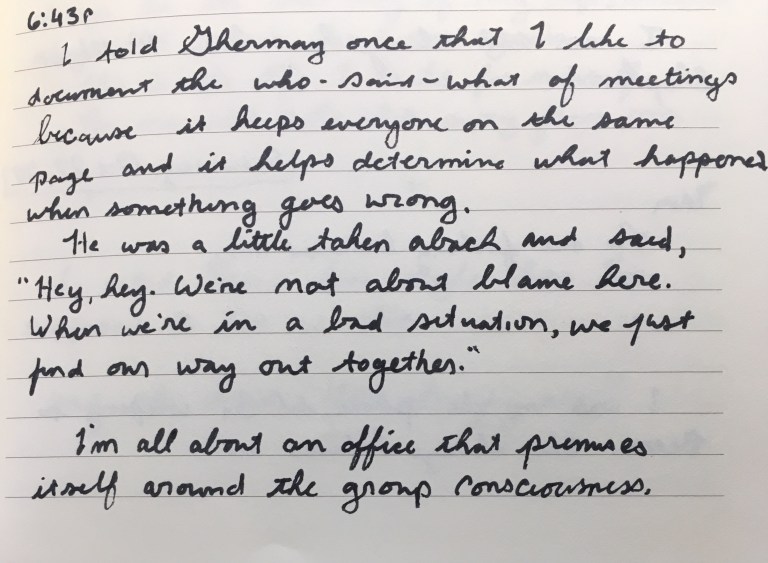 6:43P
I told Ghermay once that I like to
document the who-said-what of meetings
because it keeps everyone on the same
page and it helps determine what happened
when something goes wrong.
He was a little taken aback and said,
"Hey, hey. We're not about blame here.
When we're in a bad situation, we just
find our way out together."
I'm all about an office that premises
itself around the group consciousness.